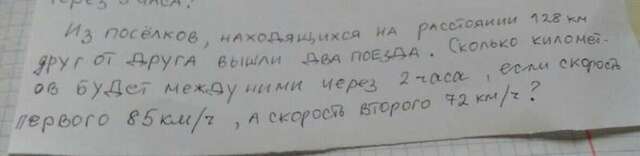 через 3 часа?
Из посёлков, находящихся на расстоянии 128 км
друг от друга вышли два поезда. Сколько километ-
ов будет между ними через 2 часа, если скорост
первого 85 км/ч, а скорость второго 72 км/ч?